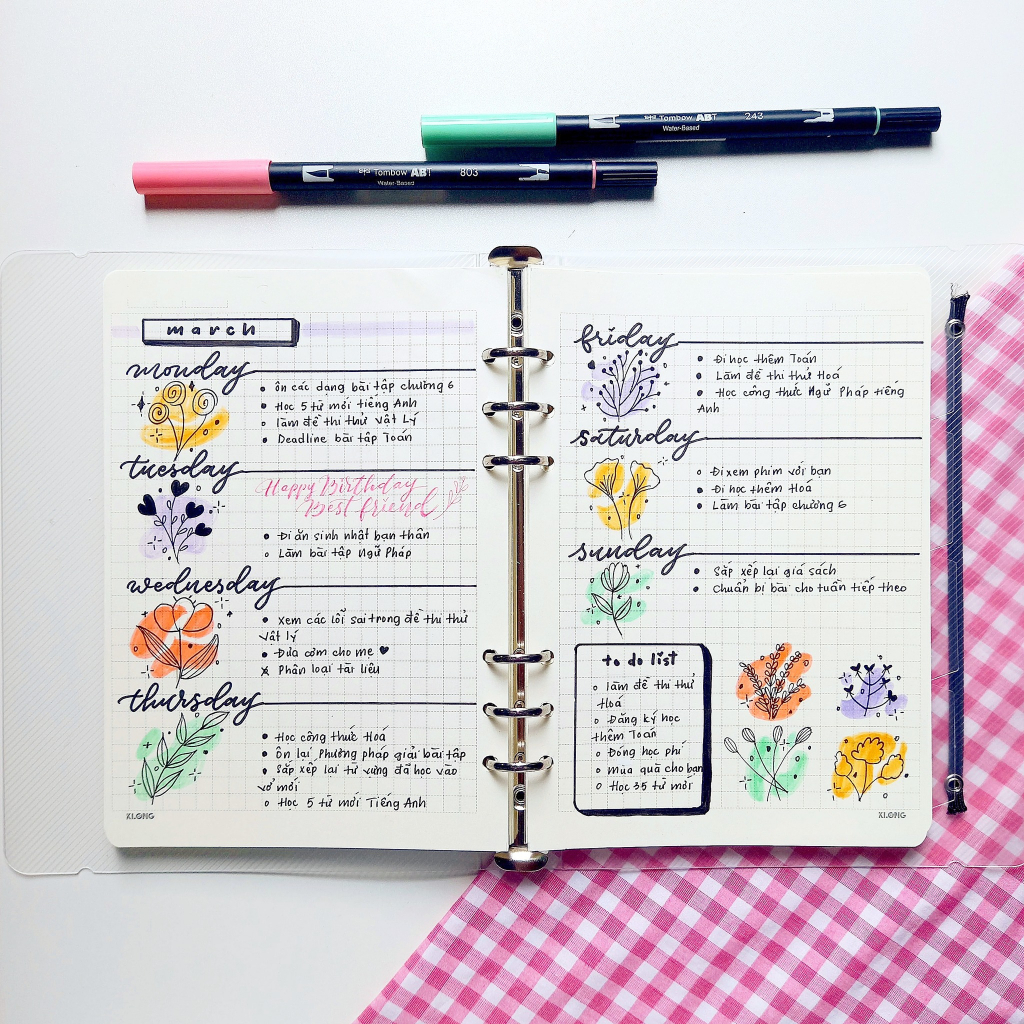 Tombow ABT 243
Water-Based
Tombow ABT 803
Water-Based
march
monday
ôn các dạng bài tập chương 6
Học 5 từ mới tiếng Anh
làm đề thi thử Vật Lý
Deadline bài tập Toán
tuesday
Happy Birthday
Best friend
Đi ăn sinh nhật bạn thân
Làm bài tập Ngữ Pháp
wednesday
Xem các lỗi sai trong đề thi thử
vật lý
Đưa cơm cho mẹ ♥
Phân loại tài liệu
thursday
Học công thức Hoá
Ôn lại Phương pháp giải bài tập
Sắp xếp lại từ vựng đã học vào
vở mới
Học 5 từ mới Tiếng Anh
XLONG
friday
Đi học thêm Toán
Làm đề thi thử Hoá
Học công thức Ngữ Pháp tiếng
Anh
saturday
Đi xem phim với bạn
Đi học thêm Hoá
Làm bài tập chương 6
sunday
Sắp xếp lại giá sách
Chuẩn bị bài cho tuần tiếp theo
to do list
làm đề thi thử
Hoá
Đăng ký học
thêm Toán
Đóng học phí
mua quà cho bạn
Học 35 từ mới
XLONG